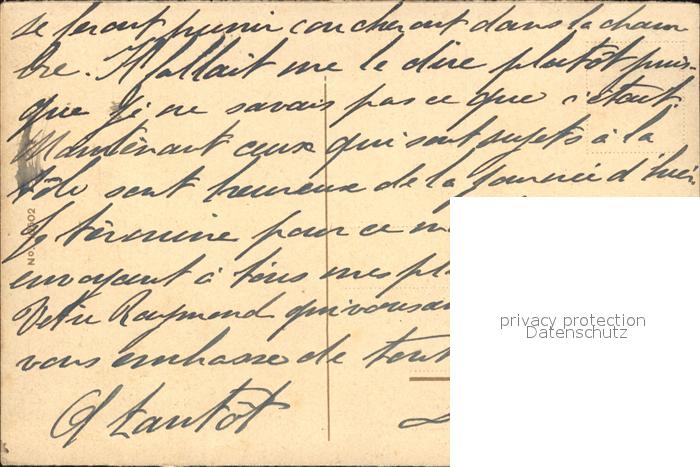 se feront punir coucheront dans la cham
bre. Il fallait me le dire plutôt puis-
que je ne savais pas ce que c'était.
Maintenant ceux qui sont sujets à la
tôle sont heureux de la journée d'hier
Je termine pour ce
envoyant à tous mes pl
Votre Raymond qui vous
vous embrasse de tout
A tantôt
No.
privacy protection
Datenschutz